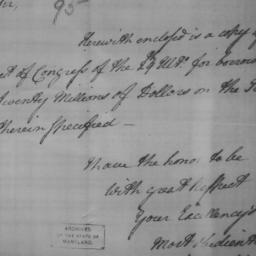 Sir,
95
Herewith enclosed is a copy of
Act of Congress of the 29 Ulto. for borrow
Twenty Millions of Dollars on the
therein Specified —
I have the honor to be
With great Respect
Your Excellency's
Most Obedient
ARCHIVES
OF THE STATE OF
MARYLAND.